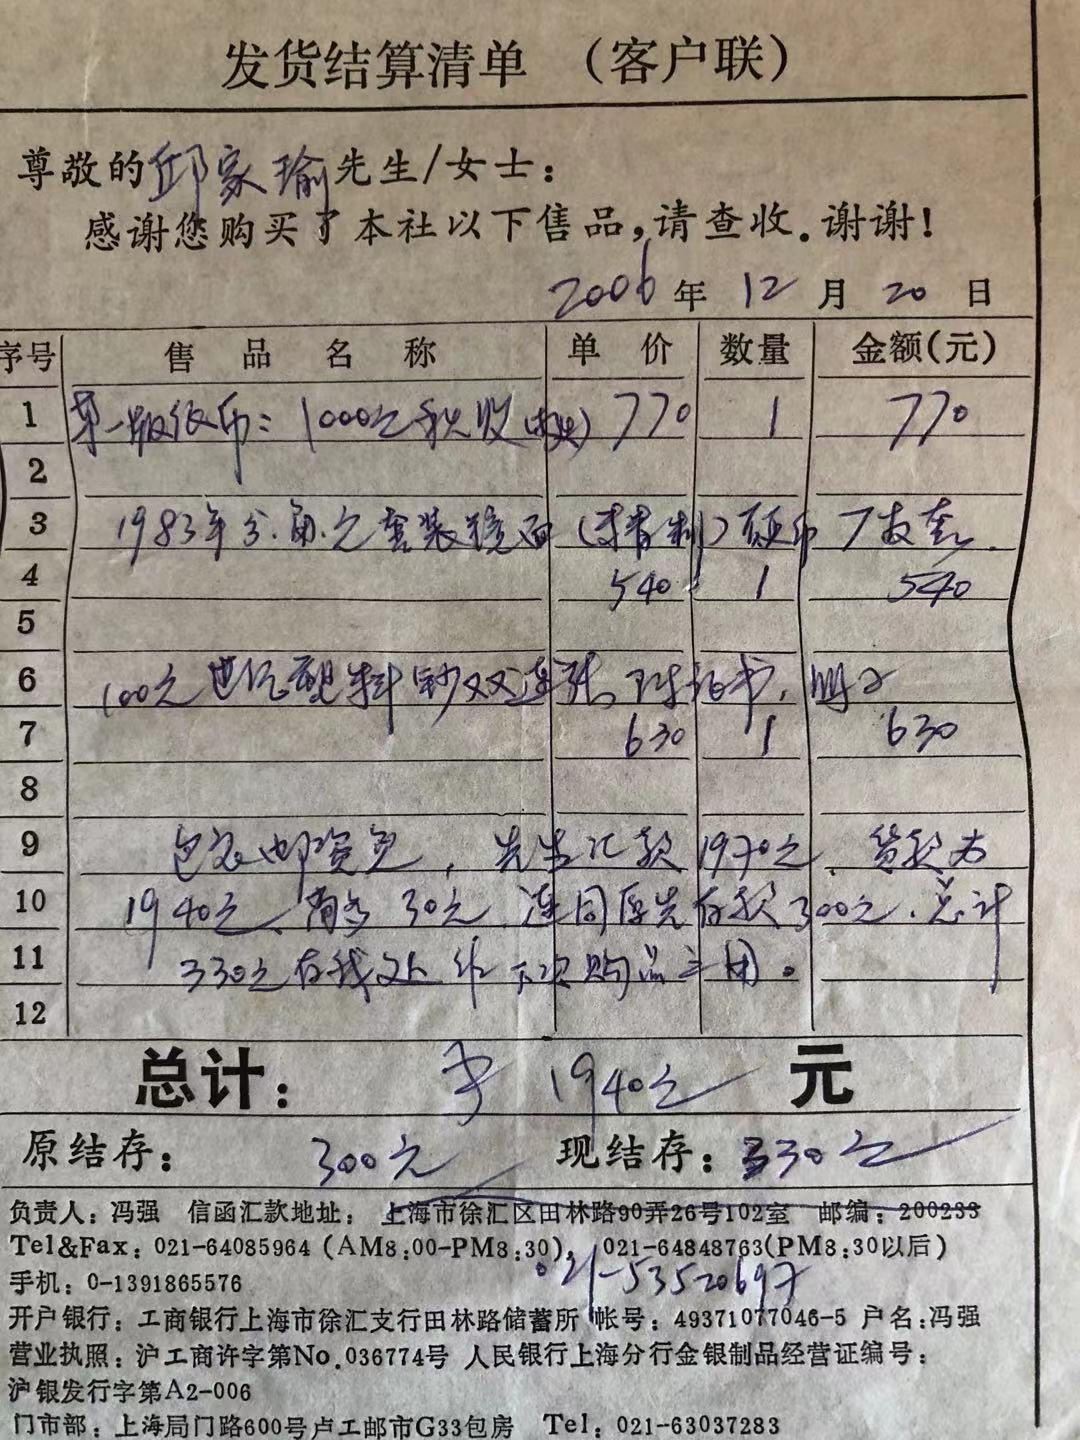 发货结算清单 （客户联）
尊敬的邱家瑜先生/女士：
感谢您购买了本社以下售品,请查收.谢谢！
2006年12月20日
序号 售品名称 单价 数量 金额(元)
1 第一版纸币：1000元秋收 770 1 770
2
3 1983年分.角.元套装镜面(精制)硬币7枚套.
4 540 1 540
5
6 100元世纪塑料钞双连张,附证书,册子
7 630 1 630
8
9 包装邮资免，先生汇款1970元、货款为
10 1940元、尚多30元、连同原先存款300元、总计
11 330元存我处作下次购品之用。
12
总计： 1940元 元
原结存： 300元 现结存：330元
负责人：冯强 信函汇款地址： 上海市徐汇区田林路90弄26号102室 邮编：200233
Tel&Fax：021-64085964（AM8:00-PM8:30）， 021-64848763(PM8:30以后)
手机：0-1391865576 021-53520697
开户银行：工商银行上海市徐汇支行田林路储蓄所 帐号：49371077046-5 户名:冯强
营业执照：沪工商许字第No.036774号 人民银行上海分行金银制品经营证编号：
沪银发行字第A2-006
门市部：上海局门路600号卢工邮市G33包房 Tel：021-63037283